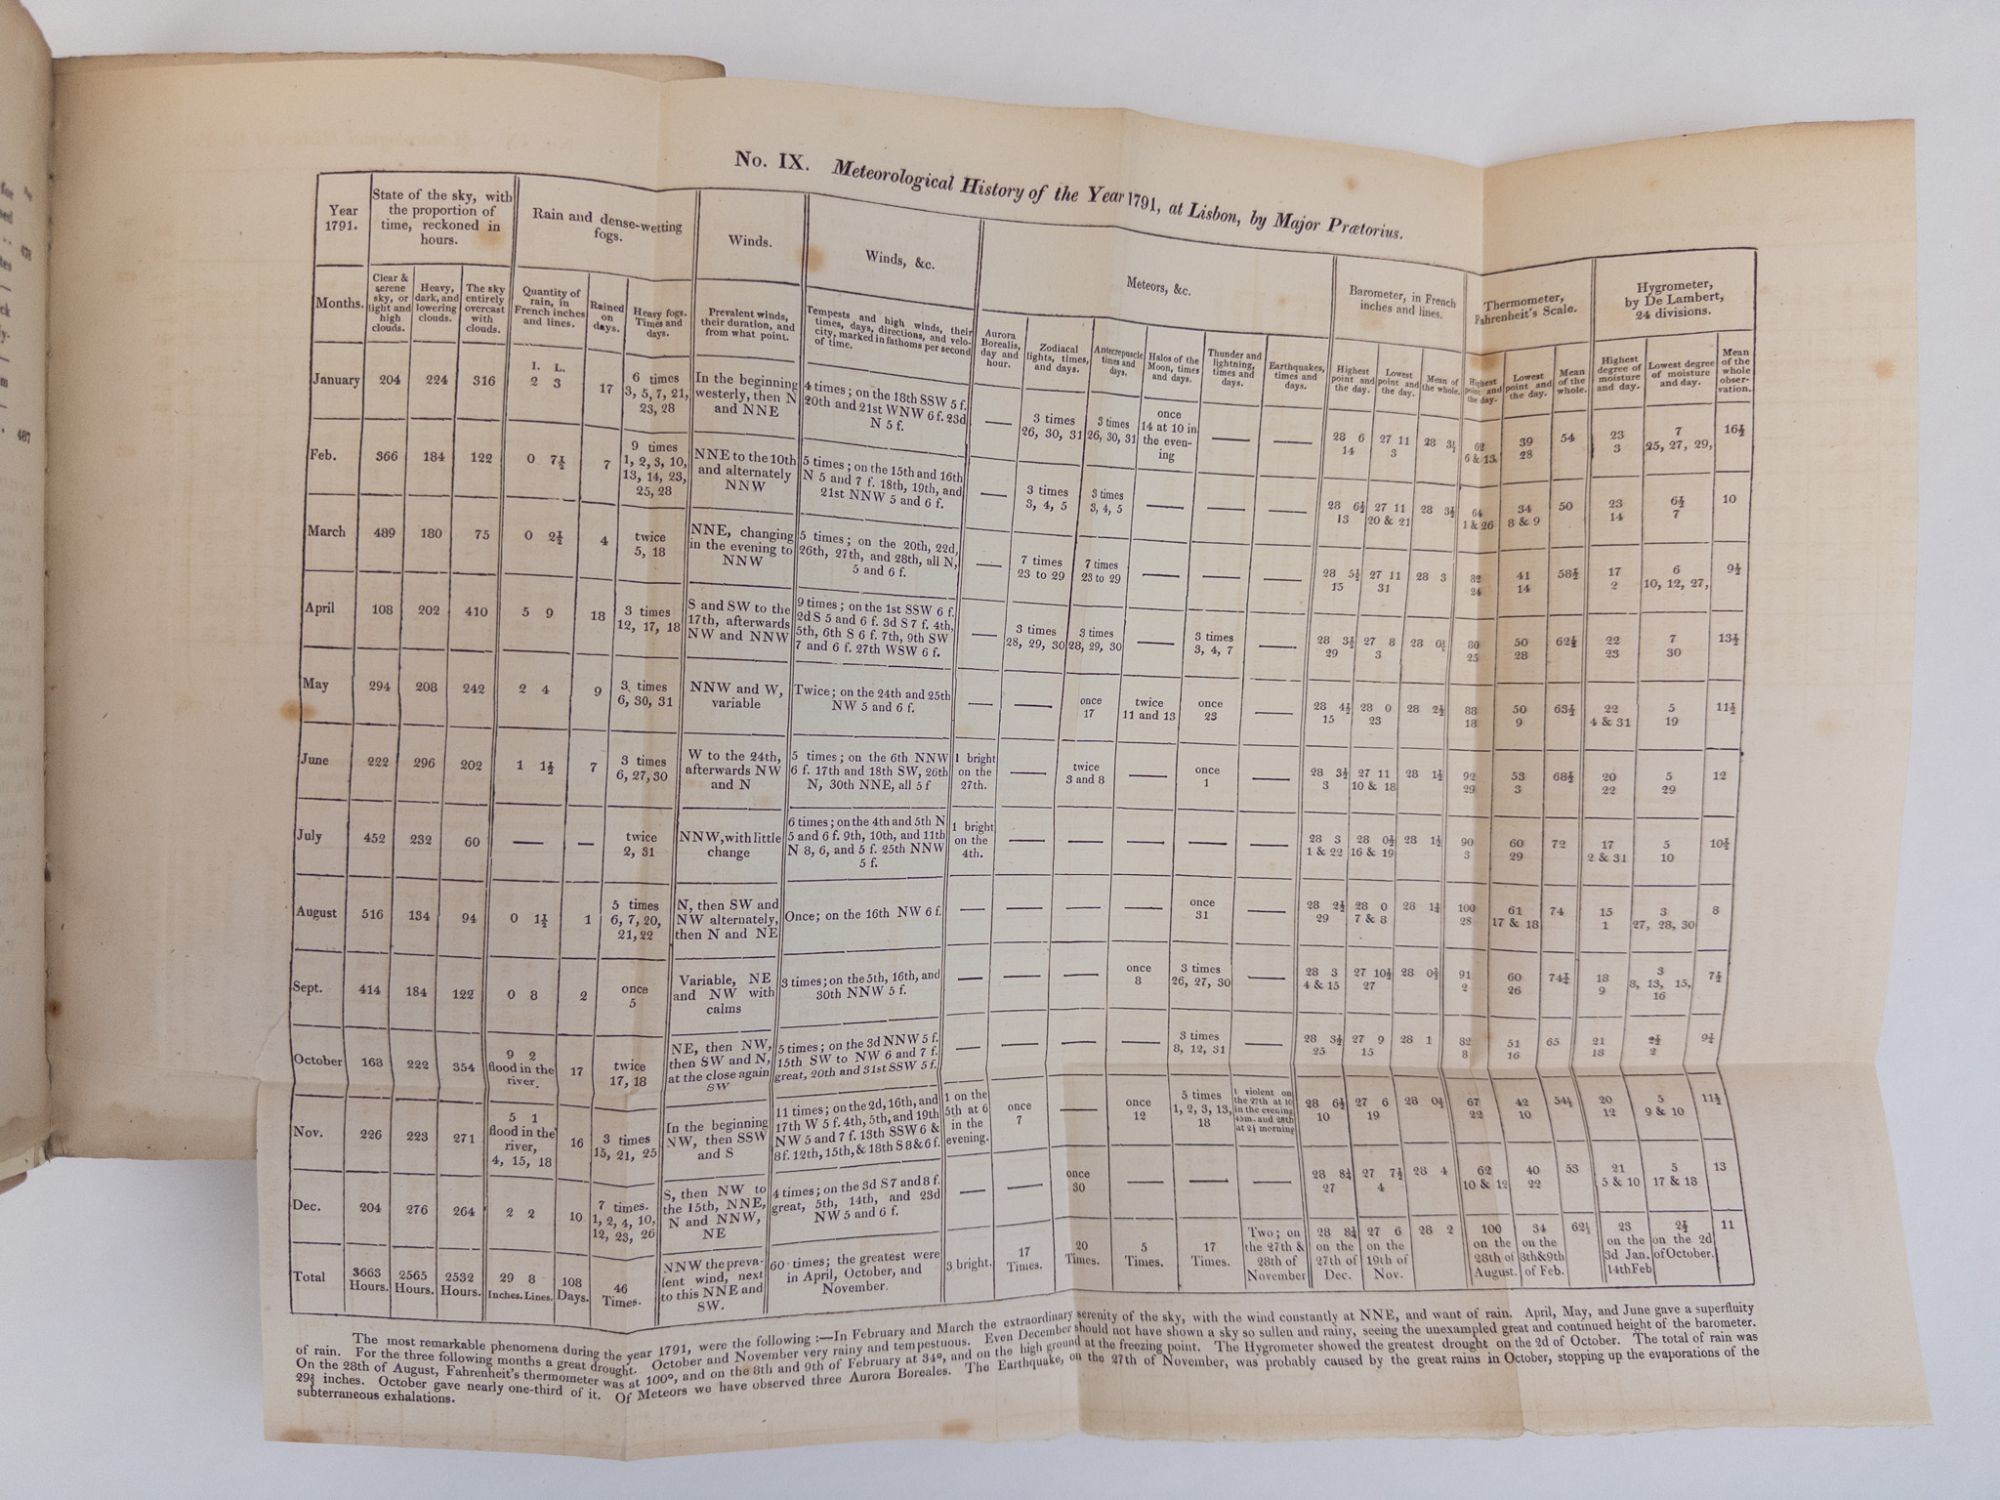 No. IX. Meteorological History of the Year 1791, at Lisbon, by Major Prætorius.
Year 1791. | State of the sky, with the proportion of time, reckoned in hours. | Rain and dense-wetting fogs. | Winds. | Winds, &c. | Meteors, &c. | Barometer, in French inches and lines. | Thermometer, Fahrenheit's Scale. | Hygrometer, by De Lambert, 24 divisions.
Months. | Clear & serene sky, or light and high clouds. | Heavy, dark, and lowering clouds. | The sky entirely overcast with clouds. | Quantity of rain, in French inches and lines. | Rained on days. | Heavy fogs. Times and days. | Prevalent winds, their duration, and from what point. | Tempests and high winds, their times, days, directions, and velocity, marked in fathoms per second of time. | Aurora Borealis, day and hour. | Zodiacal lights, times, and days. | Antecrepuscle times and days. | Halos of the Moon, times and days. | Thunder and lightning, times and days. | Earthquakes, times and days. | Highest point and the day. | Lowest point and the day. | Mean of the whole. | Highest point and the day. | Lowest point and the day. | Mean of the whole. | Highest degree of moisture and day. | Lowest degree of moisture and day. | Mean of the whole observation.
January | 204 | 224 | 316 | I. L. 2 3 | 17 | 6 times 3, 5, 7, 21, 23, 28 | In the beginning westerly, then N and NNE | 4 times; on the 18th SSW 5 f. 20th and 21st WNW 6 f. 23d N 5 f. | — | 3 times 26, 30, 31 | 3 times 26, 30, 31 | once 14 at 10 in the evening | — | — | 28 6 14 | 27 11 3 | 28 3½ | 62 6 & 13 | 39 28 | 54 | 23 3 | 7 25, 27, 29, | 16½
Feb. | 366 | 184 | 122 | 0 7½ | 7 | 9 times 1, 2, 3, 10, 13, 14, 23, 25, 28 | NNE to the 10th and alternately NNW | 5 times; on the 15th and 16th N 5 and 7 f. 18th, 19th, and 21st NNW 5 and 6 f. | — | 3 times 3, 4, 5 | 3 times 3, 4, 5 | — | — | — | 28 6½ 13 | 27 11 20 & 21 | 28 3½ | 64 1 & 26 | 34 8 & 9 | 50 | 23 14 | 6½ 7 | 10
March | 489 | 180 | 75 | 0 2½ | 4 | twice 5, 18 | NNE, changing in the evening to NNW | 5 times; on the 20th, 22d, 26th, 27th, and 28th, all N, 5 and 6 f. | — | 7 times 23 to 29 | 7 times 23 to 29 | — | — | — | 28 5½ 15 | 27 11 31 | 28 3 | 82 24 | 41 14 | 58½ | 17 2 | 6 10, 12, 27, | 9½
April | 108 | 202 | 410 | 5 9 | 18 | 3 times 12, 17, 18 | S and SW to the 17th, afterwards NW and NNW | 9 times; on the 1st SSW 6 f. 2d S 5 and 6 f. 3d S 7 f. 4th, 5th, 6th S 6 f. 7th, 9th SW 7 and 6 f. 27th WSW 6 f. | — | 3 times 28, 29, 30 | 3 times 28, 29, 30 | — | 3 times 3, 4, 7 | — | 28 3½ 29 | 27 8 3 | 28 | 80 25 | 50 28 | 62½ | 22 23 | 7 30 | 13½
May | 294 | 208 | 242 | 2 4 | 9 | 3 times 6, 30, 31 | NNW and W, variable | Twice; on the 24th and 25th NW 5 and 6 f. | — | — | once 17 | twice 11 and 13 | once 23 | — | 28 4½ 15 | 28 0 23 | 28 2½ | 88 18 | 50 9 | 63½ | 22 4 & 31 | 5 19 | 11½
June | 222 | 296 | 202 | 1 1½ | 7 | 3 times 6, 27, 30 | W to the 24th, afterwards NW and N | 5 times; on the 6th NNW 6 f. 17th and 18th SW, 26th N, 30th NNE, all 5 f | 1 bright on the 27th. | — | twice 3 and 8 | — | once 1 | — | 28 3½ 3 | 27 11 10 & 18 | 28 1½ | 92 29 | 53 3 | 68½ | 20 22 | 5 29 | 12
July | 452 | 232 | 60 | — | — | twice 2, 31 | NNW, with little change | 6 times; on the 4th and 5th N 5 and 6 f. 9th, 10th, and 11th N 8, 6, and 5 f. 25th NNW 5 f. | 1 bright on the 4th. | — | — | — | — | — | 28 3 1 & 22 | 28 0½ 16 & 19 | 28 1½ | 90 3 | 60 29 | 72 | 17 2 & 31 | 5 10 | 10½
August | 516 | 134 | 94 | 0 1½ | 1 | 5 times 6, 7, 20, 21, 22 | N, then SW and NW alternately, then N and NE | Once; on the 16th NW 6 f. | — | — | — | — | once 31 | — | 28 2½ 29 | 28 0 7 & 8 | 28 | 100 28 | 61 17 & 18 | 74 | 15 1 | 3 27, 28, 30 | 8
Sept. | 414 | 184 | 122 | 0 8 | 2 | once 5 | Variable, NE and NW with calms | 3 times; on the 5th, 16th, and 30th NNW 5 f. | — | — | — | once 8 | 3 times 26, 27, 30 | — | 28 3 4 & 15 | 27 10½ 27 | 28 | 91 2 | 60 26 | | 18 9 | 3 8, 13, 15, 16 | 7½
October | 168 | 222 | 354 | 9 2 flood in the river. | 17 | twice 17, 18 | NE, then NW, then SW and N, at the close again SW | 5 times; on the 3d NNW 5 f. 15th SW to NW 6 and 7 f. great, 20th and 31st SSW 5 f. | — | — | — | — | 3 times 8, 12, 31 | — | 28 3½ 25 | 27 9 15 | 28 1 | 82 8 | 51 16 | 65 | 21 18 | 2½ 2 |
Nov. | 226 | 223 | 271 | 5 1 flood in the river, 4, 15, 18 | 16 | 3 times 15, 21, 25 | In the beginning NW, then SSW and S | 11 times; on the 2d, 16th, and 17th W 5 f. 4th, 5th, and 19th NW 5 and 7 f. 13th SSW 6 & 8 f. 12th, 15th, & 18th S 8 & 6 f. | 1 on the 5th at 6 in the evening. | once 7 | — | once 12 | 5 times 1, 2, 3, 13, 18 | 1 violent on the 27th at 10 in the evening 45m. and 28th at 2½ morning | 28 6½ 10 | 27 6 19 | 28 | 67 22 | 42 10 | 54½ | 20 12 | 5 9 & 10 | 11½
Dec. | 204 | 276 | 264 | 2 2 | 10 | 7 times. 1, 2, 4, 10, 12, 23, 26 | S, then NW to the 15th, NNE, N and NNW, NE | 4 times; on the 3d S 7 and 8 f. great, 5th, 14th, and 23d NW 5 and 6 f. | — | — | once 30 | — | — | — | 28 8¼ 27 | 27 7½ 4 | 28 4 | 62 10 & 12 | 40 22 | 53 | 21 5 & 10 | 5 17 & 18 | 13
Total | 3663 Hours. | 2565 Hours. | 2532 Hours. | 29 8 Inches. Lines. | 108 Days. | 46 Times. | NNW the prevalent wind, next to this NNE and SW. | 60 times; the greatest were in April, October, and November. | 3 bright. | 17 Times. | 20 Times. | 5 Times. | 17 Times. | Two; on the 27th & 28th of November | 28 8¼ on the 27th of Dec. | 27 6 on the 19th of Nov. | 28 2 | 100 on the 28th of August. | 34 on the 8th&9th of Feb. | 62½ | 23 on the 3d Jan. 14th Feb | 2½ on the 2d of October. | 11
The most remarkable phenomena during the year 1791, were the following:—In February and March the extraordinary serenity of the sky, with the wind constantly at NNE, and want of rain. April, May, and June gave a superfluity
of rain. For the three following months a great drought. October and November very rainy and tempestuous. Even December should not have shown a sky so sullen and rainy, seeing the unexampled great and continued height of the barometer.
On the 28th of August, Fahrenheit's thermometer was at 100°, and on the 8th and 9th of February at 34°, and on the high ground at the freezing point. The Hygrometer showed the greatest drought on the 2d of October. The total of rain was
29⅔ inches. October gave nearly one-third of it. Of Meteors we have observed three Aurora Boreales. The Earthquake, on the 27th of November, was probably caused by the great rains in October, stopping up the evaporations of the
subterraneous exhalations.
478
487